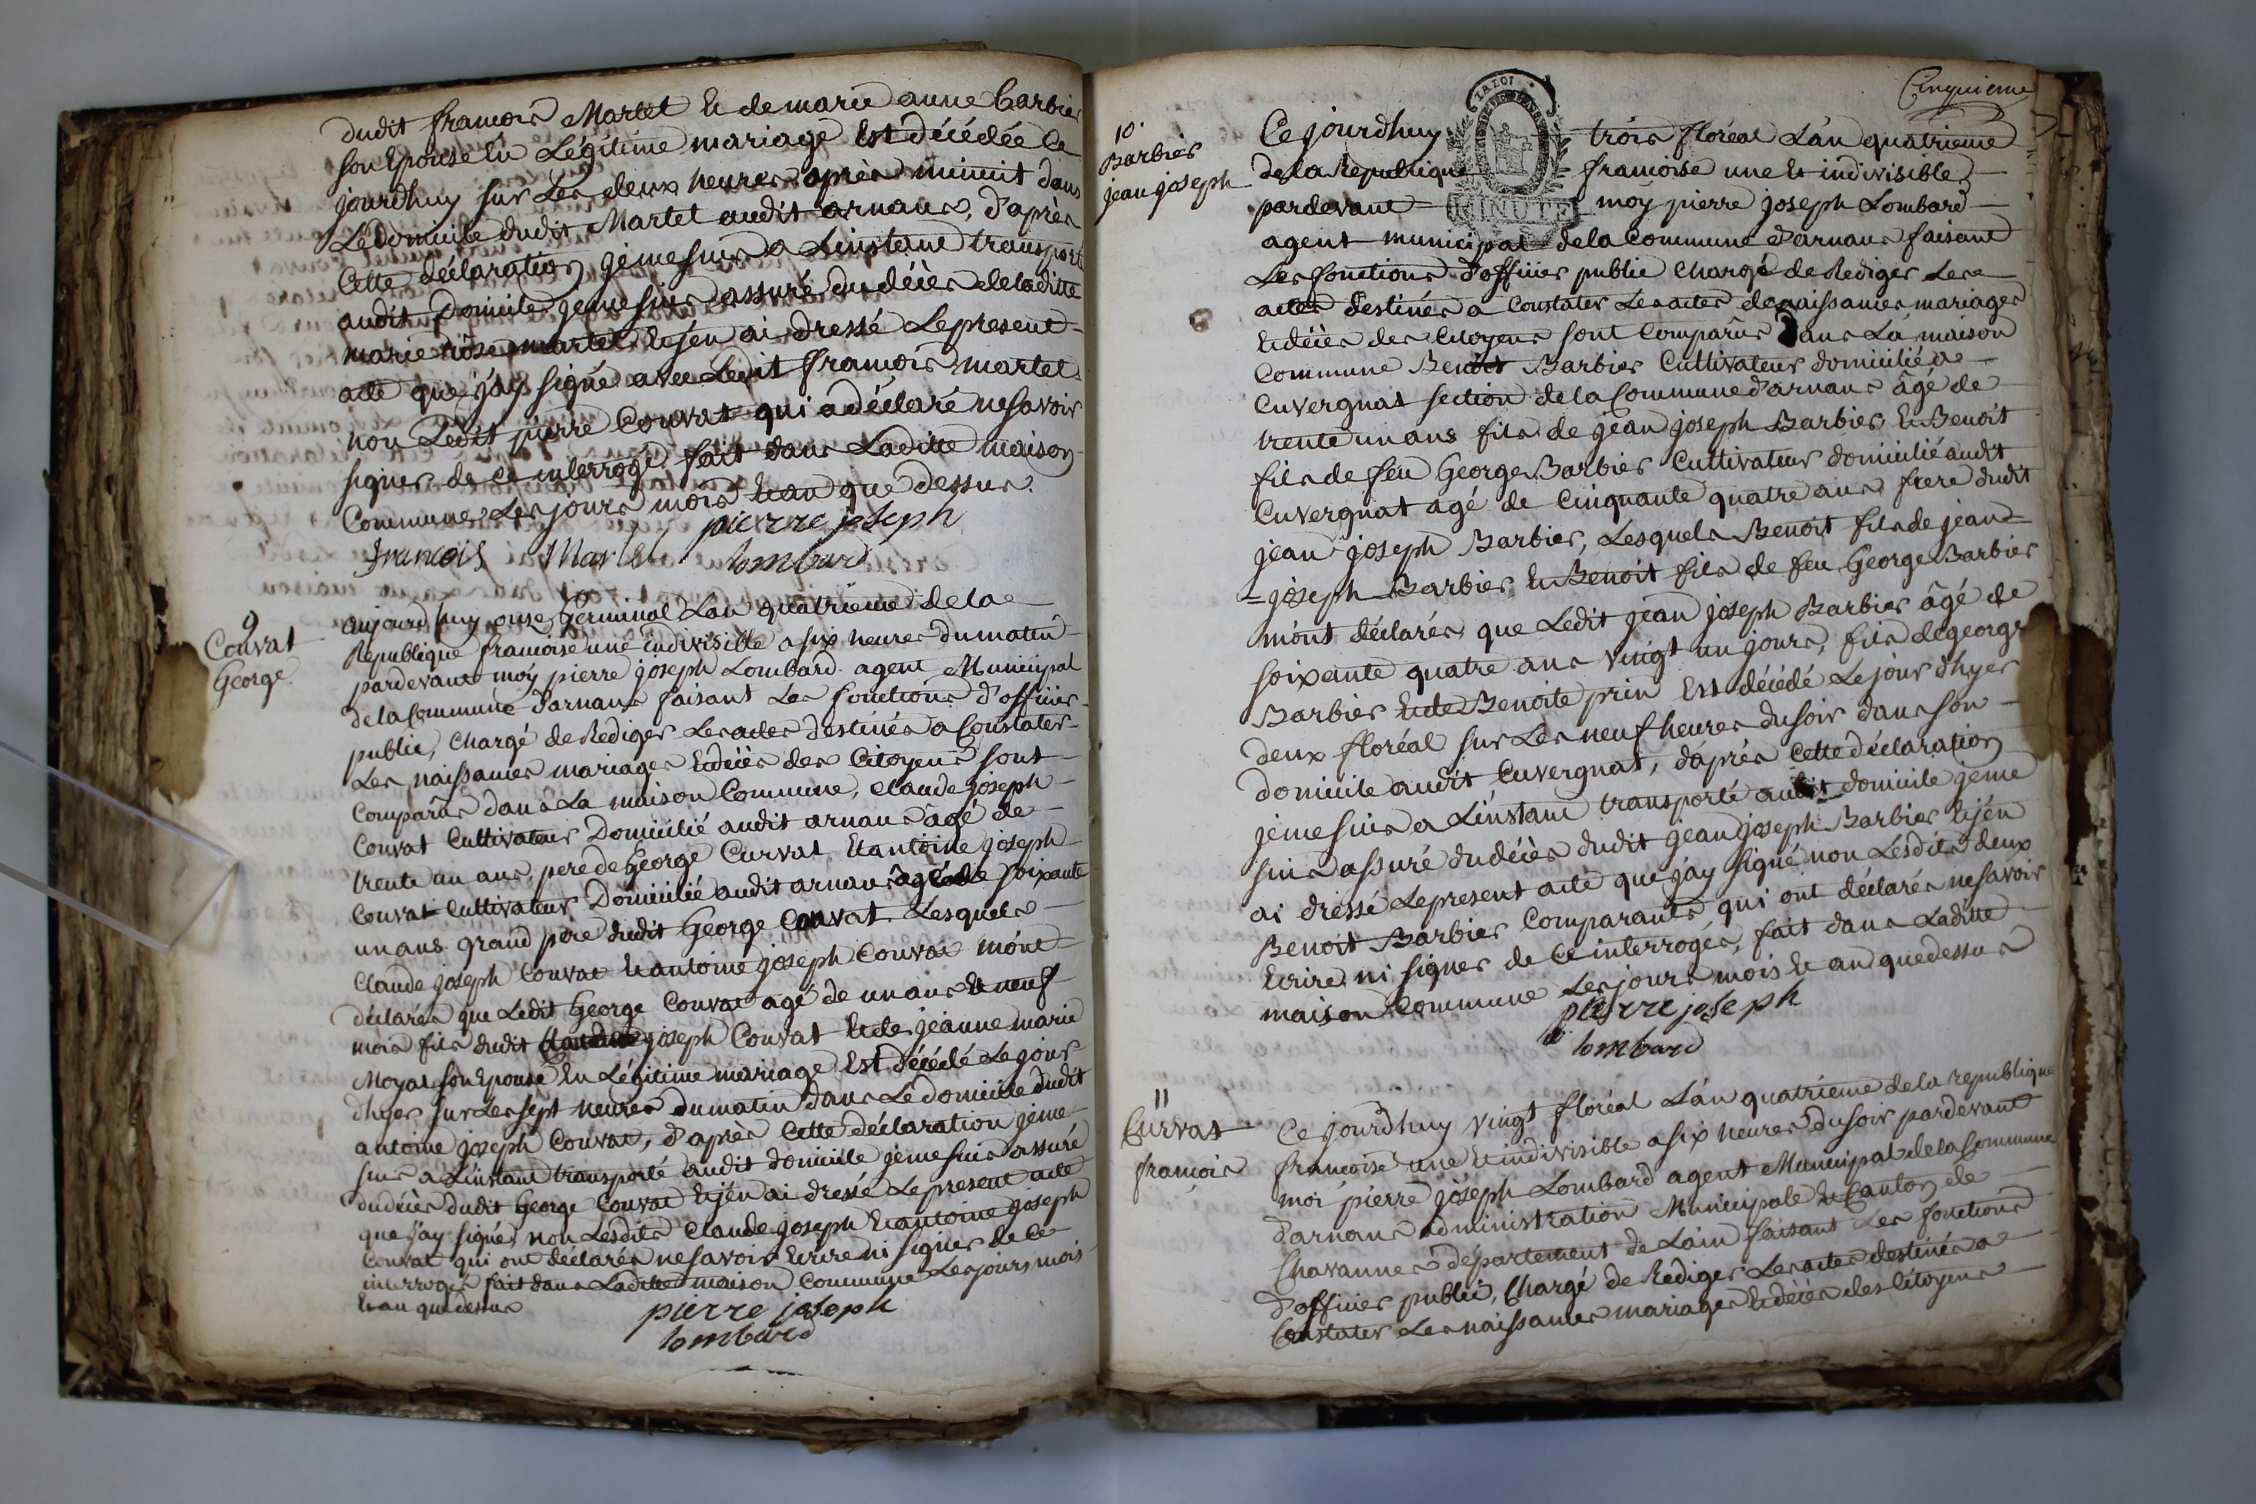 dudit francois Martel Et de marie anne barbier
son Epouse En Légitime mariage Est décédée Ce
jourdhuy sur Les deux heures après minuit dans
Le domicile dudit Martel audit arnans, d'après
Cette déclaration je me suis a Linstant transporté
audit Domicile, je me suis assuré du décès de laditte
marie rose martel Et jén ai dressé Le present
acte que j'ay signé avec Ledit francois martel
non Ledit pierre Convat qui a déclaré ne savoir
signer de ce interrogé fait dans Laditte maison
Commune Les jours mois Et an que dessus.
francois Martel pierre joseph
lombard
9
Convat
George
aujourdhuy onze Germinal Lan quatrième de la
Republique francoise une indivisible a six heures du matin
pardevant moy pierre joseph Lombard agent Municipal
de la Commune d'arnans faisant Les fonctions d'officier
public, Chargé de Rediger Les actes destinés a Constater
Les naissances mariages Et décès des Citoyens sont
Comparûs dans La maison Commune, Claude joseph
Convat Cultivateur Domicilié audit arnans âgé de
trente un ans, pere de George Curvat Et antoine joseph
Convat Cultivateur Domicilié audit arnans âgé de soixante
un ans grand père dudit George Convat Lesquels
Claude joseph Convat Et antoine joseph Convat m'ont
déclarés que Ledit George Convat agé de un ans Et neuf
mois fils dudit Claude joseph Convat Et de jeanne marie
Moyat son Epouse En Légitime mariage Est décédé Le jour
d'hyer sur Les sept heures du matin dans Le domicile dudit
antoine joseph Convat, d'après Cette déclaration je me
suis a Linstant transporté audit domicile je me suis assuré
du décès dudit George Convat Et jén ai dressé Le present acte
que j'ay signé, non Lesdits Claude joseph Et antoine joseph
Convat qui ont déclarés ne savoir Ecrire ni signer de ce
interrogés fait dans Laditte maison Commune Les jours mois
Et an que dessus
pierre joseph
lombard
Cinquieme
LA LOI
MINUTE
10
Barbier
jean joseph
Ce jourdhuy trois floréal L'an quatrieme
de la Republique francoise une Et indivisible
pardevant moy pierre joseph Lombard
agent municipal de la Commune d'arnans faisant
Les fonctions d'officier public Chargé de Rediger Les
actes destinés a Constater Les actes de naissances mariages
Et décès des Citoyens sont Comparûs Dans La maison
Commune Benoit Barbier Cultivateur domicilié a
Cuvergnat section de la Commune d'arnans âgé de
trente un ans fils de jean joseph Barbier Et Benoit
fils de feu George Barbier Cultivateur domicilié audit
Cuvergnat agé de Cinquante quatre ans frere dudit
jean joseph Barbier, Lesquels Benoit fils de jean=
=joseph Barbier Et Benoit fils de feu George Barbier
m'ont déclarés que Ledit jean joseph Barbier âgé de
soixante quatre ans vingt un jours, fils de george
Barbier Et de Benoite prin Est décédé Le jour d'hyer
deux floréal sur Les neuf heures du soir dans son
domicile audit Cuvergnat, d'après Cette déclaration
je me suis a Linstant transporté audit domicile je me
suis assuré du décès dudit jean joseph Barbier Et jén
ai dressé Le present acte que j'ay signé non Lesdits deux
Benoit Barbier Comparants qui ont déclarés ne savoir
Ecrire ni signer de ce interrogés, fait dans Laditte
maison Commune Les jours mois Et an que dessus
pierre joseph
lombard
11
Curvat
francois
Ce jourdhuy vingt floréal L'an quatrieme de la republique
francoise une Et indivisible a six heures du soir pardevant
moi pierre joseph Lombard agent Municipal de la Commune
d'arnans administration Municipale Et Canton de
Chavannes département de Lain faisant Les fonctions
d'officier public, Chargé de Rediger Les actes destinés a
Constater Les naissances mariages Et décès des Citoyens